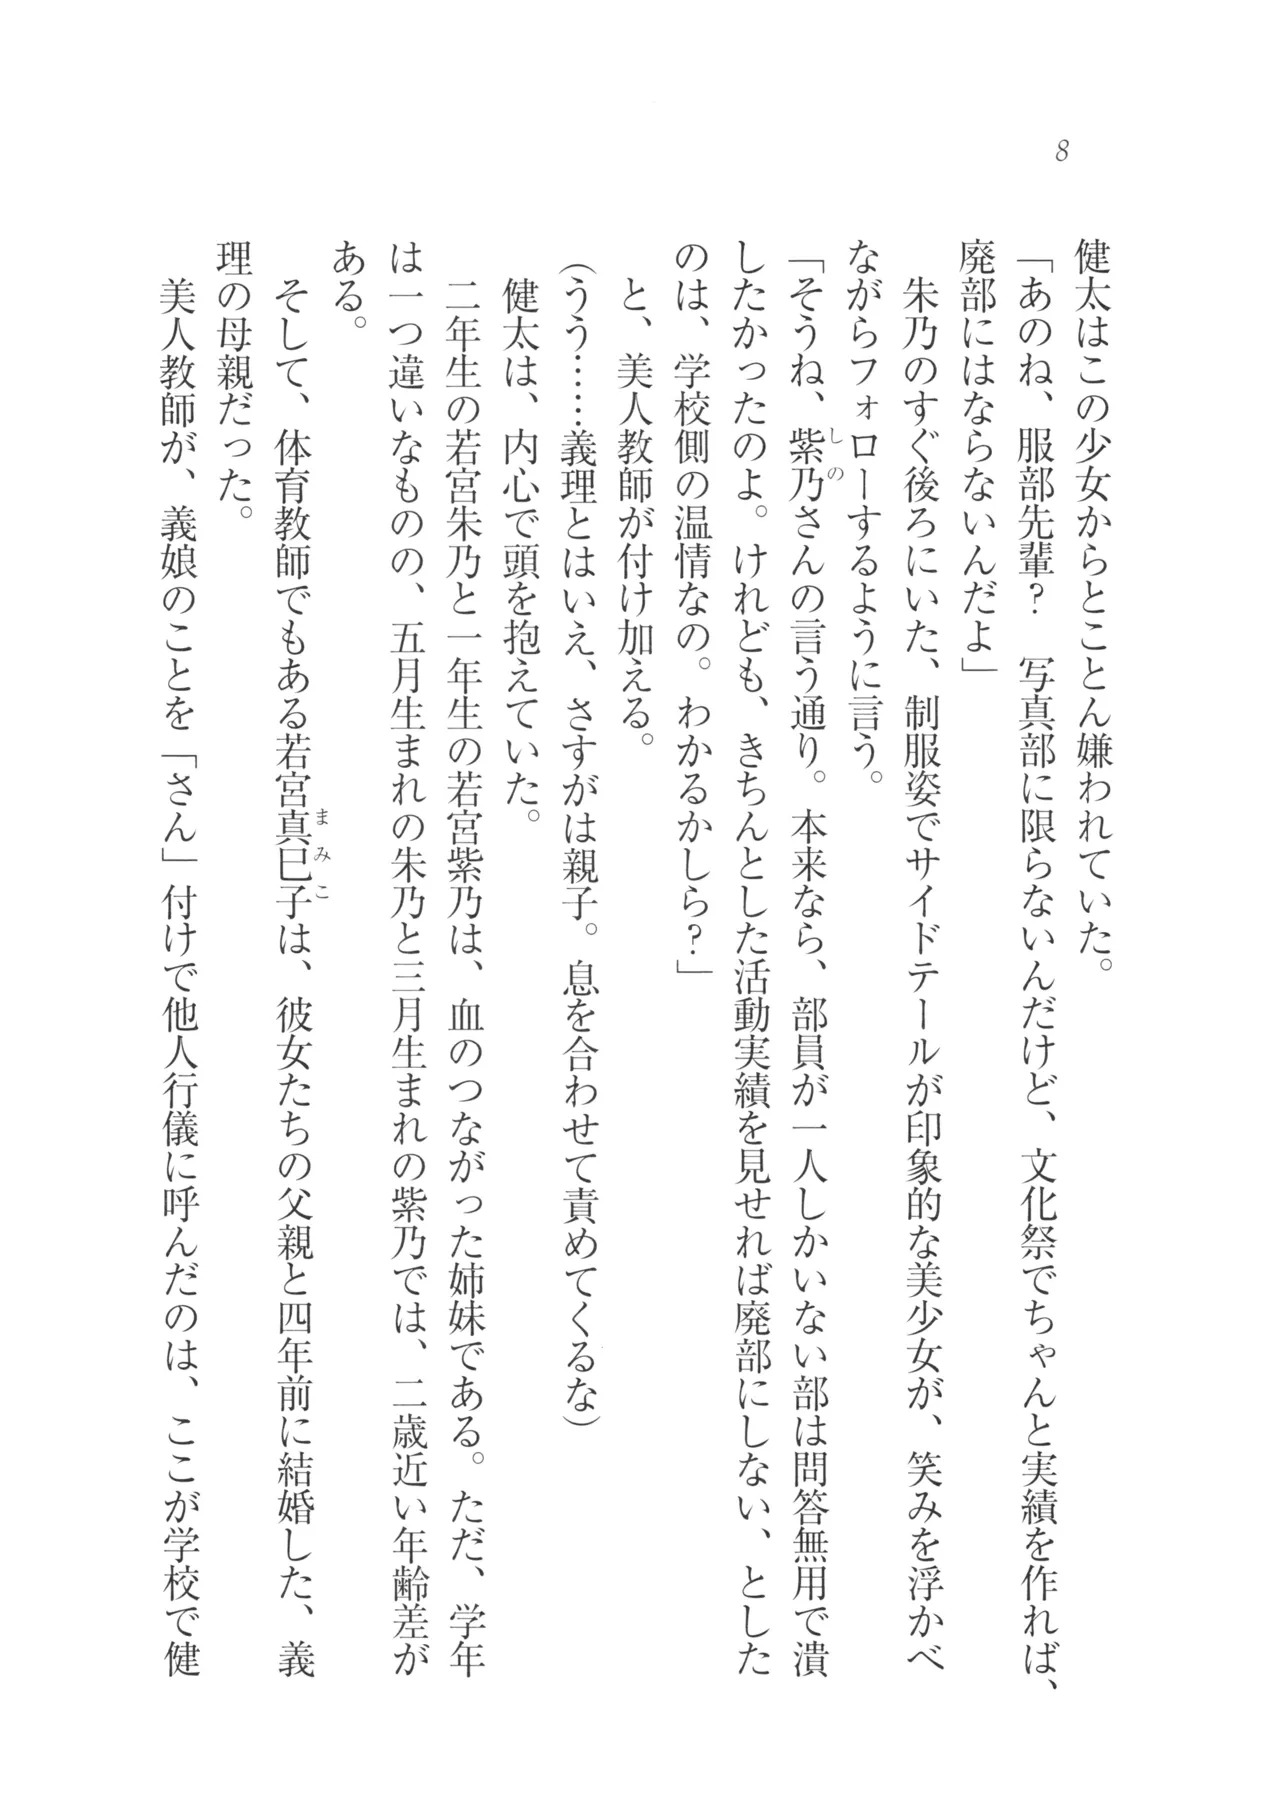 8
健太はこの少女からとことん嫌われていた。
「あのね、服部先輩？　写真部に限らないんだけど、文化祭でちゃんと実績を作れば、
廃部にはならないんだよ」
　朱乃のすぐ後ろにいた、制服姿でサイドテールが印象的な美少女が、笑みを浮かべ
ながらフォローするように言う。
「そうね、紫乃さんの言う通り。本来なら、部員が一人しかいない部は問答無用で潰
しの
したかったのよ。けれども、きちんとした活動実績を見せれば廃部にしない、とした
のは、学校側の温情なの。わかるかしら？」
　と、美人教師が付け加える。
（うう……義理とはいえ、さすがは親子。息を合わせて責めてくるな）
　健太は、内心で頭を抱えていた。
　二年生の若宮朱乃と一年生の若宮紫乃は、血のつながった姉妹である。ただ、学年
は一つ違いなものの、五月生まれの朱乃と三月生まれの紫乃では、二歳近い年齢差が
ある。
　そして、体育教師でもある若宮真巳子は、彼女たちの父親と四年前に結婚した、義
まみこ
理の母親だった。
　美人教師が、義娘のことを「さん」付けで他人行儀に呼んだのは、ここが学校で健